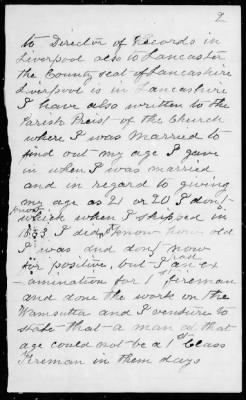 2
to Director of Records in
Liverpool also to Lancaster
the County seat of Lancashire
Liverpool is in Lancashire
I have also written to the
Parish Preist of the Church
where I was married to
find out my age I gave
in when I was married
and in regard to giving
my age as 21 or 20 I don't
when I shipped in
1853. I did know how old
I was and don't now
for positive, but I had an ex
amination for 1st fireman
and done the work on the
Wamsutta and I venture to
state that a man at that
age could not be a 1st Class
Fireman in them days